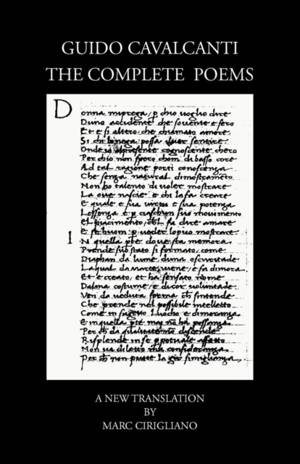 GUIDO CAVALCANTI
THE COMPLETE POEMS
Donna mi prega p chio voglio dire
Duno accidente che souente e fero
Et e si altero che chiamato amore
Si chi lo nega possa sentire
Onde presente conoscente chero
Per chio non spero chom di basso core
Ad tal ragione porti conoscenza
Che senza natural dimostramento
Non ho talento di voler mostrare
La oue nascie e chi lo fa creare
E quale e sua virtu e sua potenza
Lessenza e p ciaschun suo mouimento
El piacimento chel fa dire amare
Et se huom p ueder lo puo mostrare
In quella pte doue sta memora
Prende suo stato si formato come
Diaphan da lume duna oscuritade
Laqual da marte viene e fa dimora
Et e creato et ha sensato nome
Dalma costume e di cor voluntade
Ven da veduta forma che sintende
Che prende nel possibile intelletto
Come in loco e dimoranza
E in quella pte non ha possanza
Perche da qualitate non discende
Risplende in se effetto
Non ha diletto ma consideranza
Perche non puote simiglianza
A NEW TRANSLATION
BY
MARC CIRIGLIANO